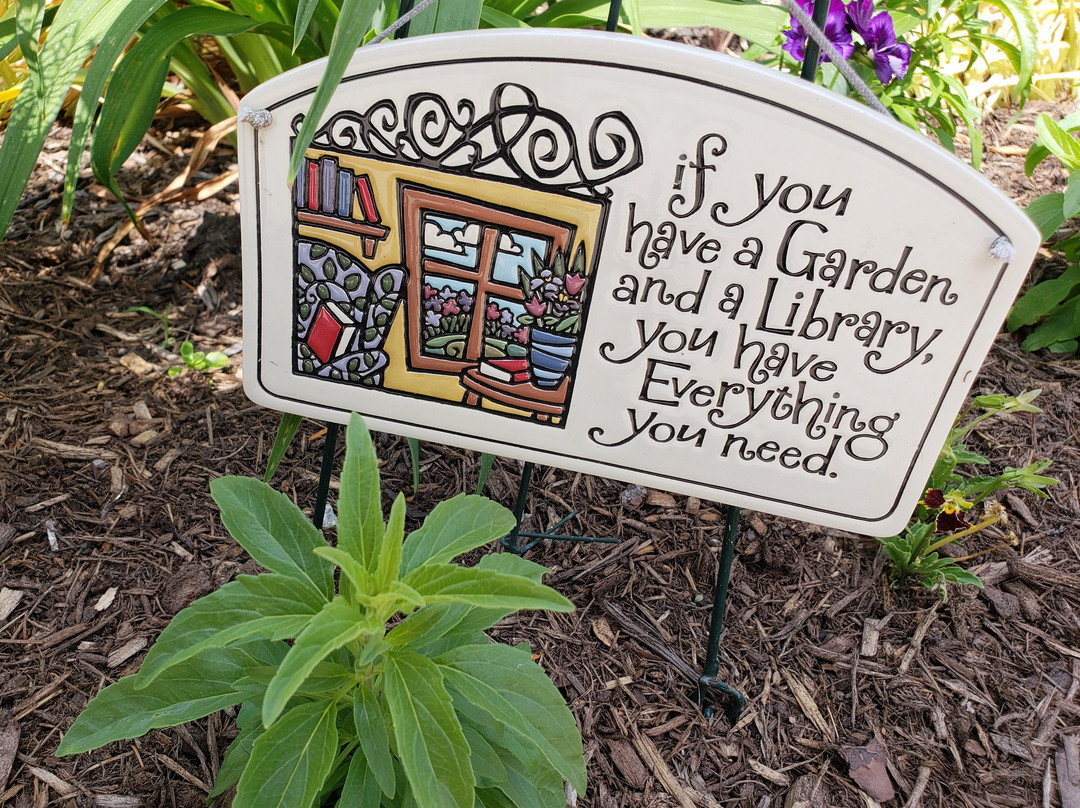 if you
have a Garden
and a Library,
you have
Everything
you need.